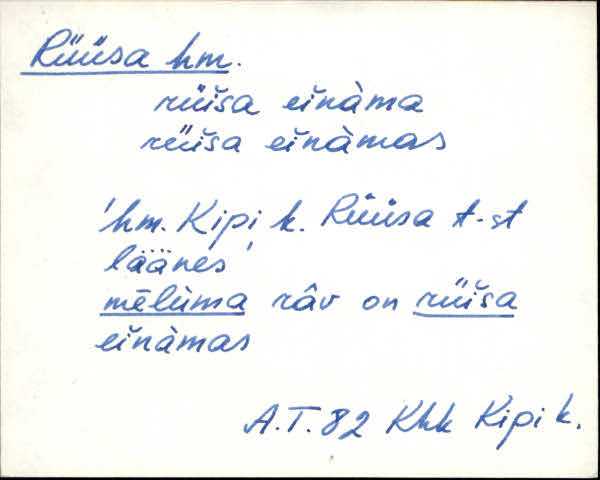 Rüüsa hm.
rüìsa eìnàma
rüìsa eìnàmas
'hm. Kipi k. Rüüsa t-st
läänes'
mēlùma râv on rüìsa
eìnàmas
A.T. 82 Khk Kipi k.